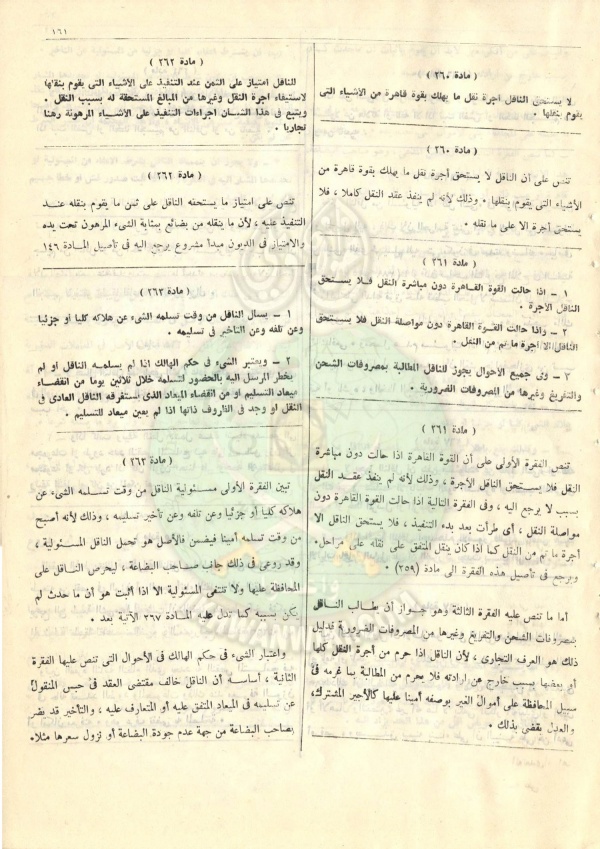 ١٦١
( مادة ٢٦٠ )
لا يستحق الناقل أجرة نقل ما يهلك بقوة قاهرة من الأشياء التى
يقوم بنقلها .
( مادة ٢٦٠ )
تنص على أن الناقل لا يستحق أجرة نقل ما يهلك بقوة قاهرة من
الأشياء التى يقوم بنقلها . وذلك لأنه لم ينفذ عقد النقل كاملا ، فلا
يستحق أجرة الا على ما نقله .
( مادة ٢٦١ )
١ – اذا حالت القوة القاهرة دون مباشرة النقل فلا يستحق
الناقل الأجرة .
٢ – واذا حالت القوة القاهرة دون مواصلة النقل فلا يستحق
الناقل الا أجرة ما تم من النقل .
٣ – وفى جميع الأحوال يجوز للناقل المطالبة بمصروفات الشحن
والتفريغ وغيرها من المصروفات الضرورية .
( مادة ٢٦١ )
تنص الفقرة الأولى على أن القوة القاهرة اذا حالت دون مباشرة
النقل فلا يستحق الناقل الأجرة ، وذلك لأنه لم ينفذ عقد النقل
بسبب لا يرجع اليه ، وفى الفقرة التالية اذا حالت القوة القاهرة دون
مواصلة النقل ، أى طرأت بعد بدء التنفيذ ، فلا يستحق الناقل الا
أجرة ما تم من النقل كما اذا كان ينقل المتفق على نقله على مراحل.
ويرجع فى تأصيل هذه الفقرة الى مادة (٢٥٩) .
أما ما تنص عليه الفقرة الثالثة وهو جواز أن يطالب الناقل
بمصروفات الشحن والتفريغ وغيرها من المصروفات الضرورية فدليل
ذلك هو العرف التجارى ، لأن الناقل اذا حرم من أجرة النقل كلها
أو بعضها بسبب خارج عن ارادته فلا يحرم من المطالبة بما غرمه فى
سبيل المحافظة على أموال الغير بوصفه أمينا عليها كالأجير المشترك،
والعدل يقضى بذلك .
( مادة ٢٦٢ )
للناقل امتياز على الثمن عند التنفيذ على الأشياء التى يقوم بنقلها
لاستيفاء أجرة النقل وغيرها من المبالغ المستحقة له بسبب النقل .
ويتبع فى هذا الشأن اجراءات التنفيذ على الأشياء المرهونة رهنا
تجاريا .
( مادة ٢٦٢ )
تنص على امتياز ما يستحقه الناقل على ثمن ما يقوم بنقله عند
التنفيذ عليه ، لأن ما ينقله من بضائع بمثابة الشىء المرهون تحت يده
والامتياز فى الديون مبدأ مشروع يرجع اليه فى تأصيل المادة ١٤٦
( مادة ٢٦٣ )
١ – يسأل الناقل من وقت تسلمه الشىء عن هلاكه كليا أو جزئيا
وعن تلفه وعن التأخير فى تسليمه .
٢ – ويعتبر الشىء فى حكم الهالك اذا لم يسلمه الناقل أو لم
يخطر المرسل اليه بالحضور لتسلمه خلال ثلاثين يوما من انقضاء
ميعاد التسليم أو من انقضاء الميعاد الذى يستغرقه الناقل العادى فى
النقل لو وجد فى الظروف ذاتها اذا لم يعين ميعاد للتسليم .
( مادة ٢٦٣ )
تبين الفقرة الأولى مسئولية الناقل من وقت تسلمه الشىء عن
هلاكه كليا أو جزئيا وعن تلفه وعن تأخير تسليمه ، وذلك لأنه أصبح
من وقت تسلمه أمينا فيضمن فالأصل هو تحمل الناقل المسئولية ،
وقد روعى فى ذلك جانب صاحب البضاعة ، ليحرص الناقل على
المحافظة عليها ولا تنتفى المسئولية الا اذا أثبت هو أن ما حدث لم
يكن بسببه كما تدل عليه المادة ٢٦٧ الآتية بعد .
واعتبار الشىء فى حكم الهالك فى الأحوال التى تنص عليها الفقرة
الثانية ، أساسه أن الناقل خالف مقتضى العقد فى حبس المنقول
عن تسليمه فى الميعاد المتفق عليه أو المتعارف عليه ، والتأخير قد يضر
بصاحب البضاعة من جهة عدم جودة البضاعة أو نزول سعرها مثلا.